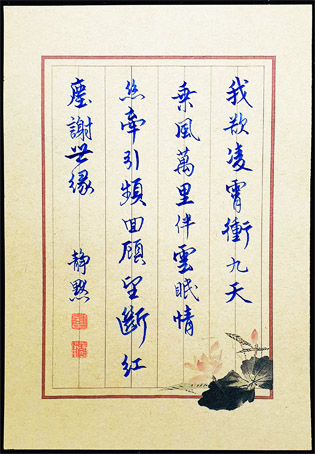 我欲凌霄衝九天
乘風萬里伴雲眠情
絲牽引頻回顧望斷紅
塵謝世緣
靜默